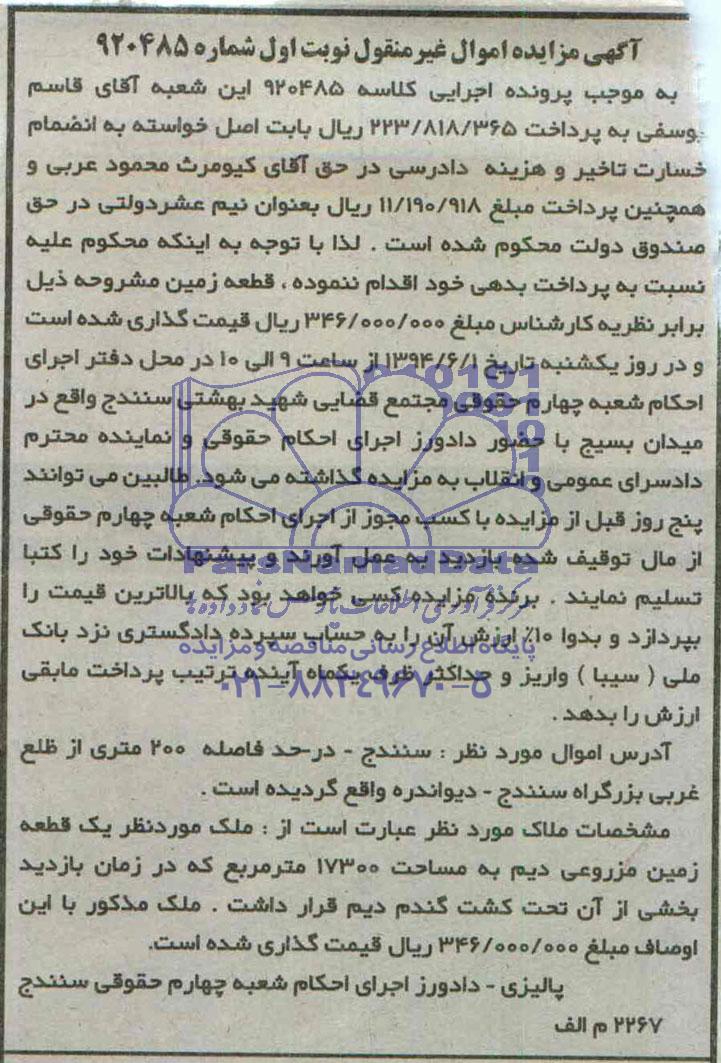 آگهی مزایده اموال غیرمنقول نوبت اول شماره ۹۲۰۴۸۵
به موجب پرونده اجرایی کلاسه ۹۲۰۴۸۵ این شعبه آقای قاسم
یوسفی به پرداخت ۲۲۳/۸۱۸/۳۶۵ ریال بابت اصل خواسته به انضمام
خسارت تاخیر و هزینه دادرسی در حق آقای کیومرث محمود عربی و
همچنین پرداخت مبلغ ۱۱/۱۹۰/۹۱۸ ریال بعنوان نیم عشردولتی در حق
صندوق دولت محکوم شده است . لذا با توجه به اینکه محکوم علیه
نسبت به پرداخت بدهی خود اقدام ننموده ، قطعه زمین مشروحه ذیل
برابر نظریه کارشناس مبلغ ۳۴۶/۰۰۰/۰۰۰ ریال قیمت گذاری شده است
و در روز یکشنبه تاریخ ۱۳۹۴/۶/۱ از ساعت ۹ الی ۱۰ در محل دفتر اجرای
احکام شعبه چهارم حقوقی مجتمع قضایی شهید بهشتی سنندج واقع در
میدان بسیج با حضور دادورز اجرای احکام حقوقی و نماینده محترم
دادسرای عمومی و انقلاب به مزایده گذاشته می شود. طالبین می توانند
پنج روز قبل از مزایده با کسب مجوز از اجرای احکام شعبه چهارم حقوقی
از مال توقیف شده بازدید به عمل آورند و پیشنهادات خود را کتبا
ParsNamadData
تسلیم نمایند . برنده مزایده کسی خواهد بود که بالاترین قیمت را
مرکز فرآوری اطلاعات پارس نماد داده ها
بپردازد و بدوا ۱۰٪ ارزش آن را به حساب سپرده دادگستری نزد بانک
پایگاه اطلاع رسانی مناقصه و مزایده
ملی ( سیبا ) واریز و حداکثر ظرف یکماه آینده ترتیب پرداخت مابقی
۰۲۱-۸۸۳۴۹۶۷۰-۵
ارزش را بدهد .
آدرس اموال مورد نظر : سنندج - در-حد فاصله ۲۰۰ متری از ظلع
غربی بزرگراه سنندج - دیواندره واقع گردیده است .
مشخصات ملاک مورد نظر عبارت است از : ملک موردنظر یک قطعه
زمین مزروعی دیم به مساحت ۱۷۳۰۰ مترمربع که در زمان بازدید
بخشی از آن تحت کشت گندم دیم قرار داشت . ملک مذکور با این
اوصاف مبلغ ۳۴۶/۰۰۰/۰۰۰ ریال قیمت گذاری شده است.
پالیزی - دادورز اجرای احکام شعبه چهارم حقوقی سنندج
۲۲۶۷ م الف